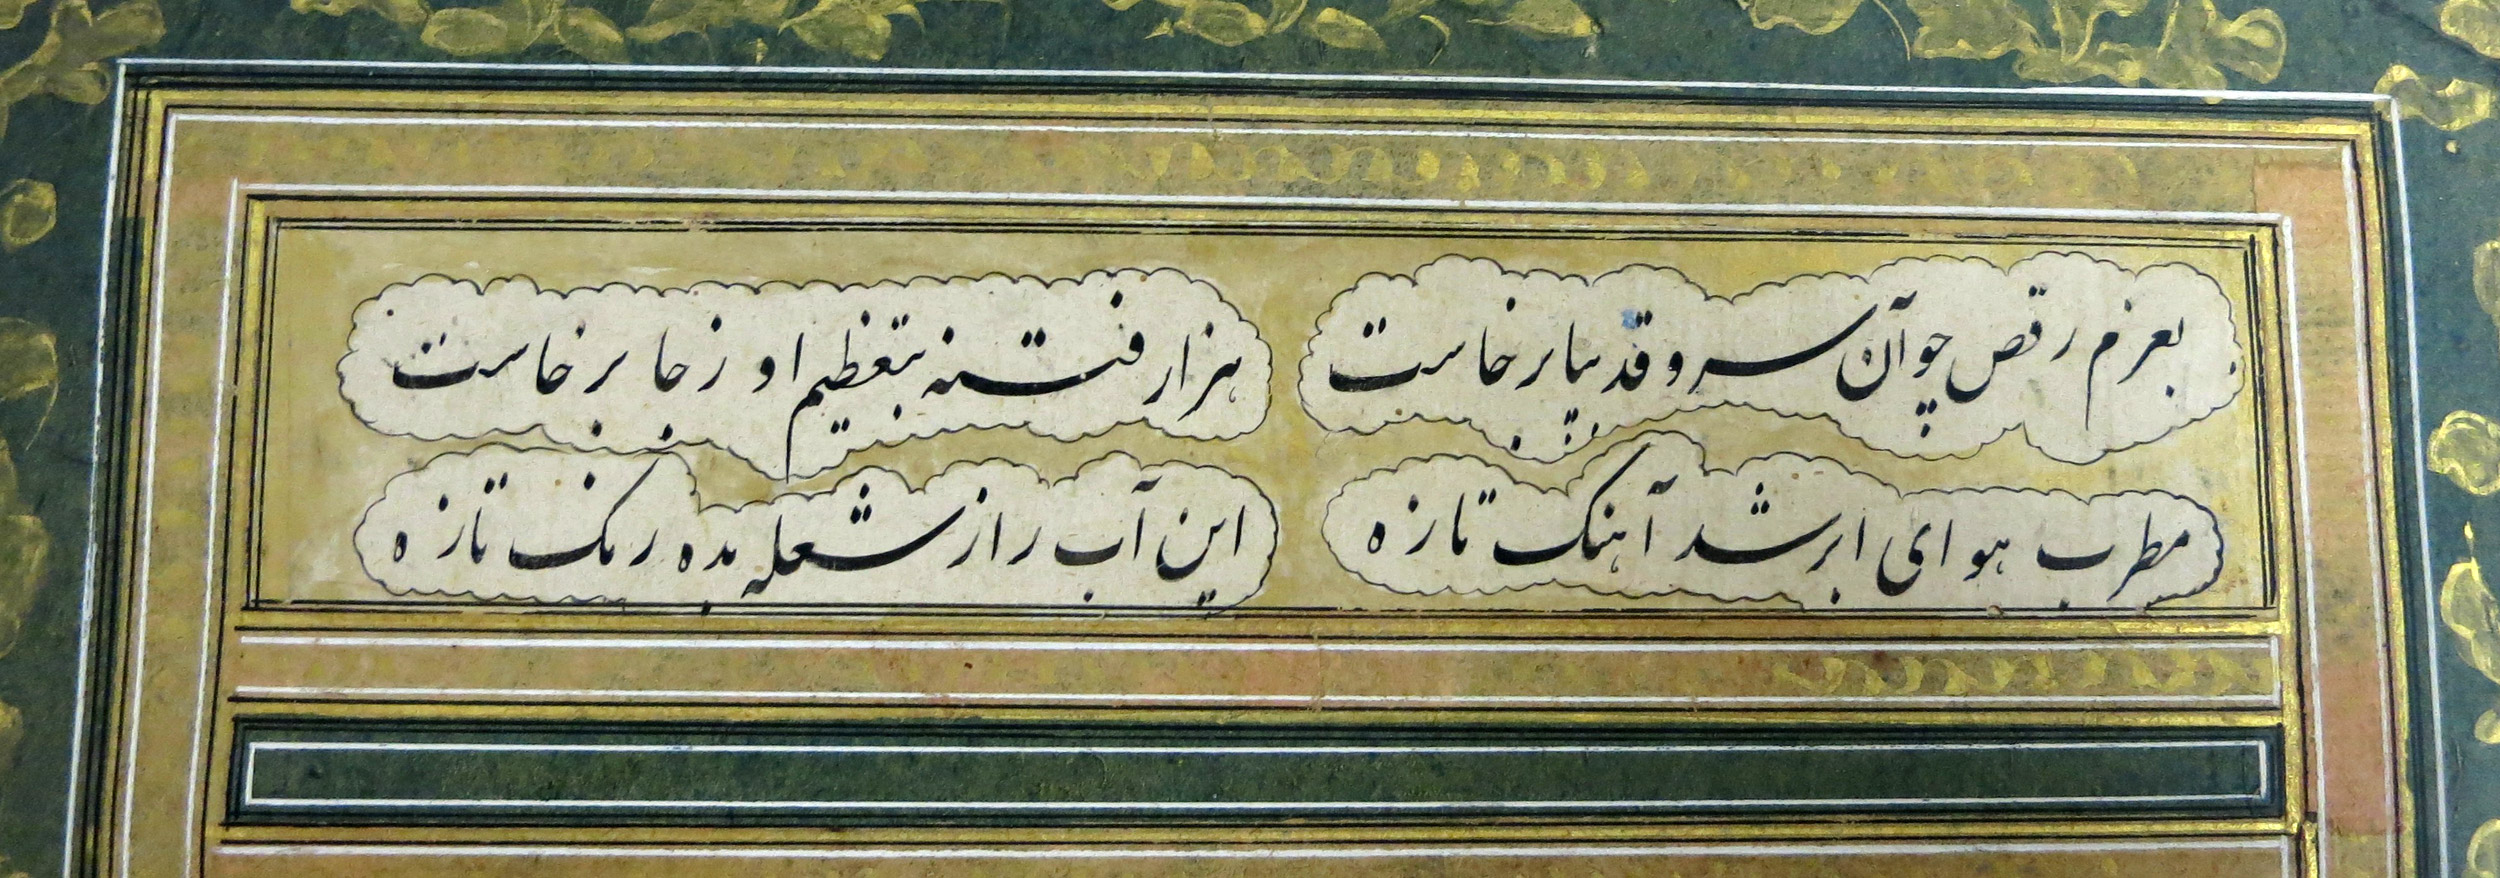 بعزم رقص چو آن سرو قد بپا برخاست
هزار فتنه بتعظیم او ز جا برخاست
مطرب هوای ابر شد آهنک تازه
این آب را ز شعله بده رنک تازه